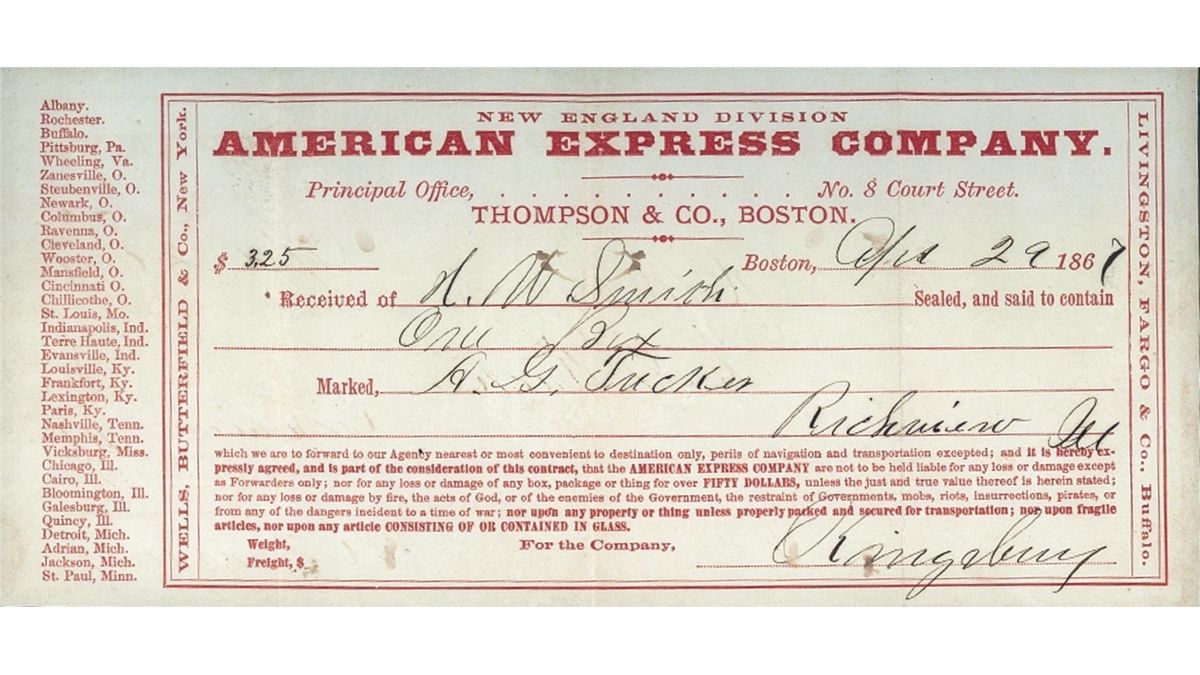 Albany.
Rochester.
Buffalo.
Pittsburg, Pa.
Wheeling, Va.
Zanesville, O.
Steubenville, O.
Newark, O.
Columbus, O.
Ravenna, O.
Cleveland, O.
Wooster, O.
Mansfield, O.
Cincinnati O.
Chillicothe, O.
St. Louis, Mo.
Indianapolis, Ind.
Terre Haute, Ind.
Evansville, Ind.
Louisville, Ky.
Frankfort, Ky.
Lexington, Ky.
Paris, Ky.
Nashville, Tenn.
Memphis, Tenn.
Vicksburg, Miss.
Chicago, Ill.
Cairo, Ill.
Bloomington, Ill.
Galesburg, Ill.
Quincy, Ill.
Detroit, Mich.
Adrian, Mich.
Jackson, Mich.
St. Paul, Minn.
WELLS, BUTTERFIELD & Co., New York.
NEW ENGLAND DIVISION
AMERICAN EXPRESS COMPANY.
Principal Office, . . . . . . . . . . . No. 8 Court Street.
THOMPSON & CO., BOSTON.
$ 3,25 Boston, Apl 29 1867
Received of H. W Smith Sealed, and said to contain
One Box
Marked, A. G. Tucker
Richview Ill
which we are to forward to our Agency nearest or most convenient to destination only, perils of navigation and transportation excepted; and it is hereby ex-
pressly agreed, and is part of the consideration of this contract, that the AMERICAN EXPRESS COMPANY are not to be held liable for any loss or damage except
as Forwarders only; nor for any loss or damage of any box, package or thing for over FIFTY DOLLARS, unless the just and true value thereof is herein stated;
nor for any loss or damage by fire, the acts of God, or of the enemies of the Government, the restraint of Governments, mobs, riots, insurrections, pirates, or
from any of the dangers incident to a time of war; nor upon any property or thing unless properly packed and secured for transportation; nor upon fragile
articles, nor upon any article CONSISTING OF OR CONTAINED IN GLASS.
Weight,
Freight, $
For the Company, Kingsbury
LIVINGSTON, FARGO & Co., Buffalo.